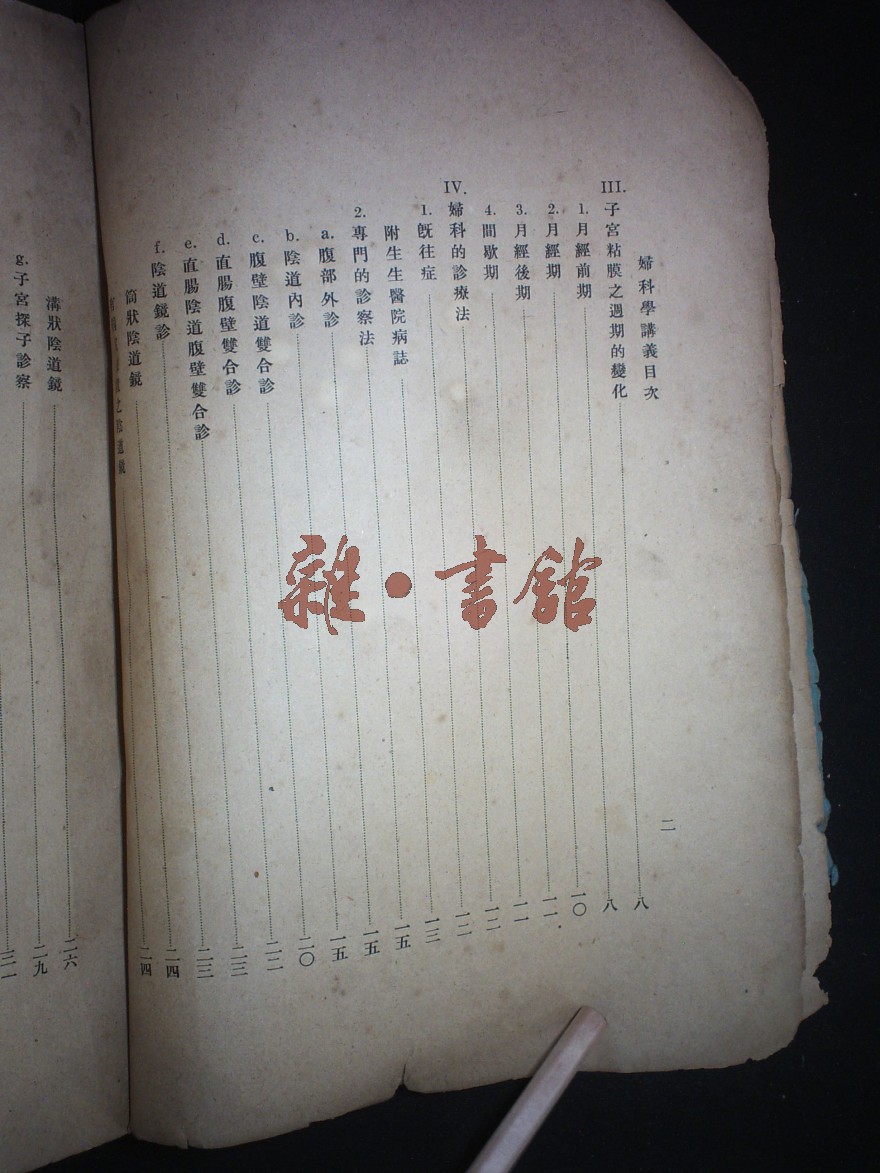 婦科學講義目次
二
III. 子宮粘膜之週期的變化……八
1. 月經前期……八
2. 月經期……一〇
3. 月經後期……一一
4. 間歇期……一一
IV. 婦科的診療法……一二
1. 旣往症……一二
附生生醫院病誌……一三
2. 專門的診察法……一五
a. 腹部外診……一五
b. 陰道內診……一五
c. 腹壁陰道雙合診……二〇
d. 直腸腹壁雙合診……二二
e. 直腸陰道腹壁雙合診……二三
f. 陰道鏡診……二三
筒狀陰道鏡……二四
之陰道鏡……二四
溝狀陰道鏡……二六
g. 子宮探子診察……二九
三一
雜·書館